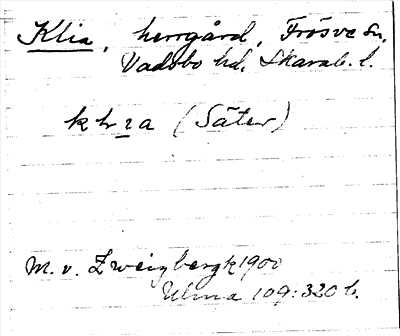 Klia, herrgård, Frösve sn,
Vadsbo hd, Skarab. l.
(Säter)
M. v. Zweigbergk 1900
Ulma 109:320 b.